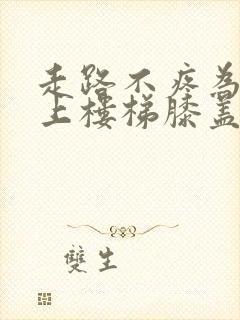 走路不疼為
上樓梯膝蓋
雙生